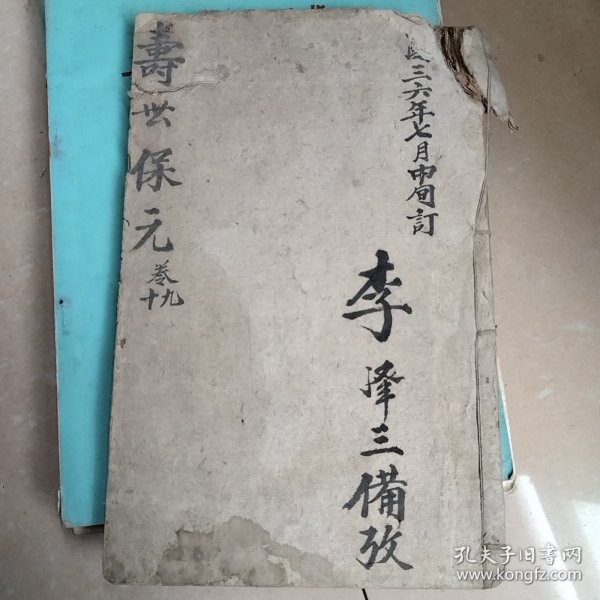 民三六年七月中旬訂
李澤三備攷
壽世保元
卷九十
孔夫子旧书网
www.kongfz.com